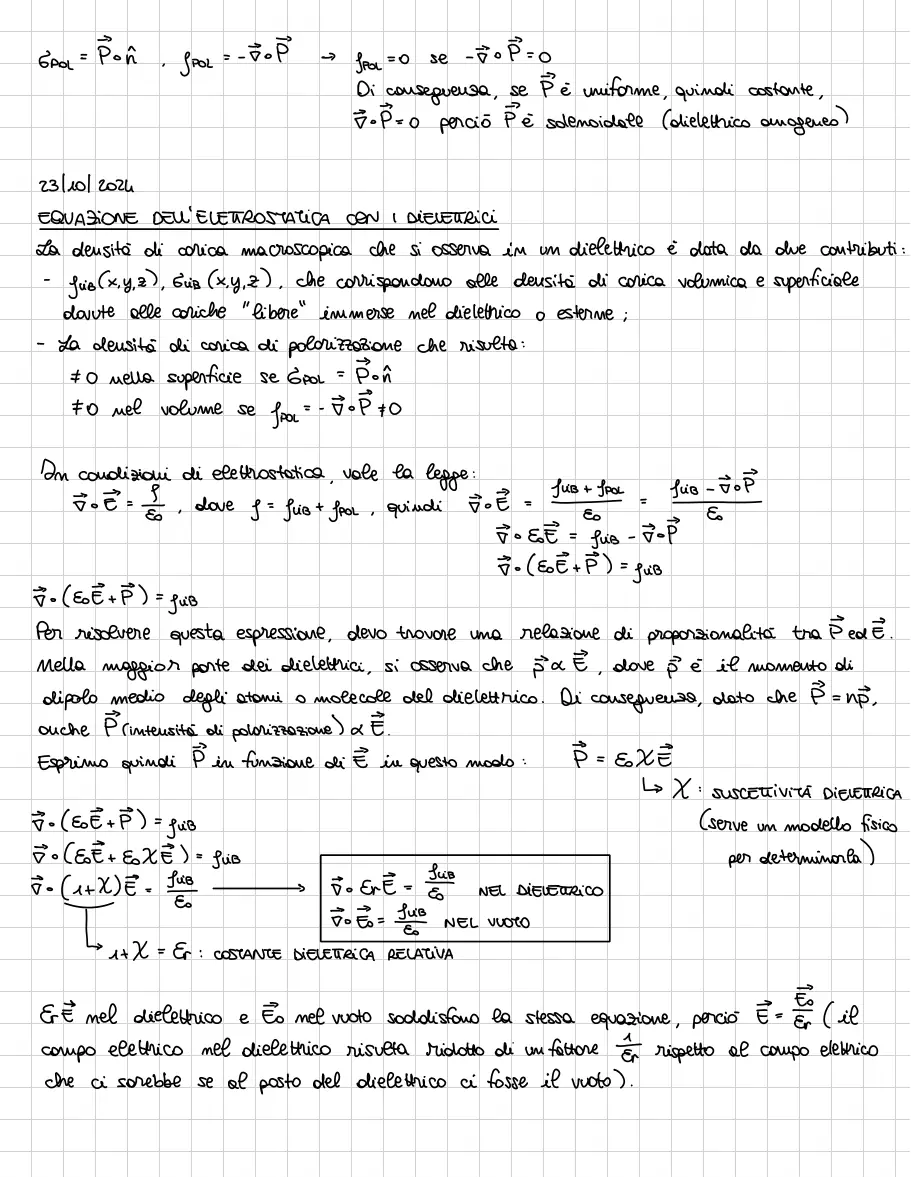 σPOL = P⃗∘n̂ , ρPOL = -∇⃗∘P⃗ → ρPOL = 0 se -∇⃗∘P⃗ = 0
Di conseguenza, se P⃗ è uniforme, quindi costante,
∇⃗∘P⃗ = 0 perciò P⃗ è solenoidale (dielettrico omogeneo)
23/10/2024
EQUAZIONE DELL'ELETTROSTATICA CON I DIELETTRICI
La densità di carica macroscopica che si osserva in un dielettrico è data da due contributi:
- ρLIB(x,y,z), σLIB(x,y,z), che corrispondono alle densità di carica volumica e superficiale
dovute alle cariche "libere" immerse nel dielettrico o esterne;
- La densità di carica di polarizzazione che risulta:
≠0 nella superficie se σPOL = P⃗∘n̂
≠0 nel volume se ρPOL = -∇⃗∘P⃗ ≠0
In condizioni di elettrostatica, vale la legge:
∇⃗∘E⃗ = ρ/ε₀, dove ρ = ρLIB + ρPOL, quindi ∇⃗∘E⃗ = (ρLIB + ρPOL)/ε₀ = (ρLIB - ∇⃗∘P⃗)/ε₀
∇⃗∘ε₀E⃗ = ρLIB - ∇⃗∘P⃗
∇⃗∘(ε₀E⃗ + P⃗) = ρLIB
∇⃗∘(ε₀E⃗ + P⃗) = ρLIB
Per risolvere questa espressione, devo trovare una relazione di proporzionalità tra P⃗ ed E⃗.
Nella maggior parte dei dielettrici, si osserva che p⃗ ∝ E⃗, dove p⃗ è il momento di
dipolo medio degli atomi o molecole del dielettrico. Di conseguenza, dato che P⃗ = np⃗,
anche P⃗ (intensità di polarizzazione) ∝ E⃗.
Esprimo quindi P⃗ in funzione di E⃗ in questo modo: P⃗ = ε₀χE⃗
↳ χ: SUSCETTIVITÀ DIELETTRICA
(serve un modello fisico
per determinarla)
∇⃗∘(ε₀E⃗ + P⃗) = ρLIB
∇⃗∘(ε₀E⃗ + ε₀χE⃗) = ρLIB
∇⃗∘(1+χ)E⃗ = ρLIB/ε₀ → ∇⃗∘εrE⃗ = ρLIB/ε₀ NEL DIELETTRICO
∇⃗∘E⃗₀ = ρLIB/ε₀ NEL VUOTO
↳ 1+χ = εr: COSTANTE DIELETTRICA RELATIVA
εrE⃗ nel dielettrico e E⃗₀ nel vuoto soddisfano la stessa equazione, perciò E⃗ = E⃗₀/εr (il
campo elettrico nel dielettrico risulta ridotto di un fattore 1/εr rispetto al campo elettrico
che ci sarebbe se al posto del dielettrico ci fosse il vuoto).